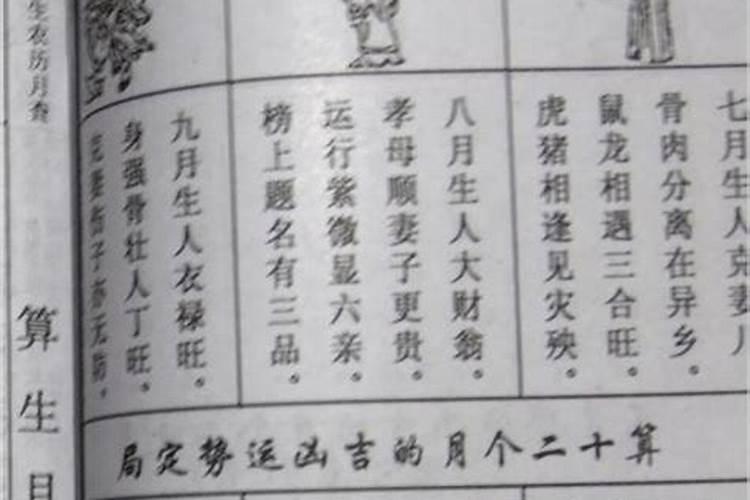 七月生人克妻
骨肉分离在异乡。
鼠龙相遇三合旺。
虎猪相逢见灾殃。
八月生人大财翁。
孝母顺妻子更贵。
运行紫微显六亲。
榜上题名有三品。
九月生人衣禄旺。
身强骨壮人丁旺。
克妻伤子亦无防。
算十二个月的吉凶运势定局
生农历月查
算生日